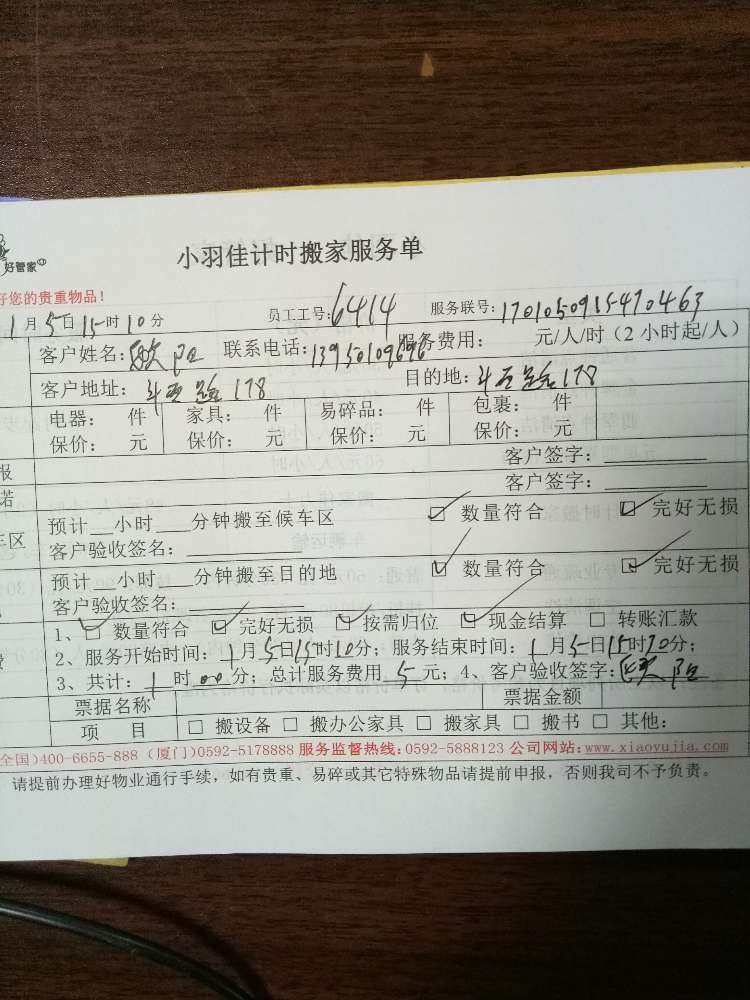 好管家
小羽佳计时搬家服务单
好您的贵重物品！
1月5日15时10分 员工工号：6414 服务联号：1701050915470463
客户姓名：欧阳 联系电话：13950109696 服务费用： 元/人/时（2小时起/人）
客户地址：斗西路178 目的地：斗西路178
电器： 件 家具： 件 易碎品： 件 包裹： 件
保价： 元 保价： 元 保价： 元 保价： 元
报 客户签字：
诺 客户签字：
车区 预计__小时___分钟搬至候车区 ☑ 数量符合 ☑ 完好无损
客户验收签名：
预计__小时___分钟搬至目的地 ☑ 数量符合 ☑ 完好无损
客户验收签名：
1、☑ 数量符合 ☑ 完好无损 ☑ 按需归位 ☑ 现金结算 □ 转账汇款
2、服务开始时间：1月5日15时10分；服务结束时间：1月5日15时70分；
3、共计：1时00分；总计服务费用 5元；4、客户验收签字：欧阳
票据名称 票据金额
项 目 □ 搬设备 □ 搬办公家具 □ 搬家具 □ 搬书 □ 其他：
全国)400-6655-888（厦门)0592-5178888 服务监督热线:0592-5888123 公司网站:www.xiaoyujia.com
请提前办理好物业通行手续，如有贵重、易碎或其它特殊物品请提前申报，否则我司不予负责。